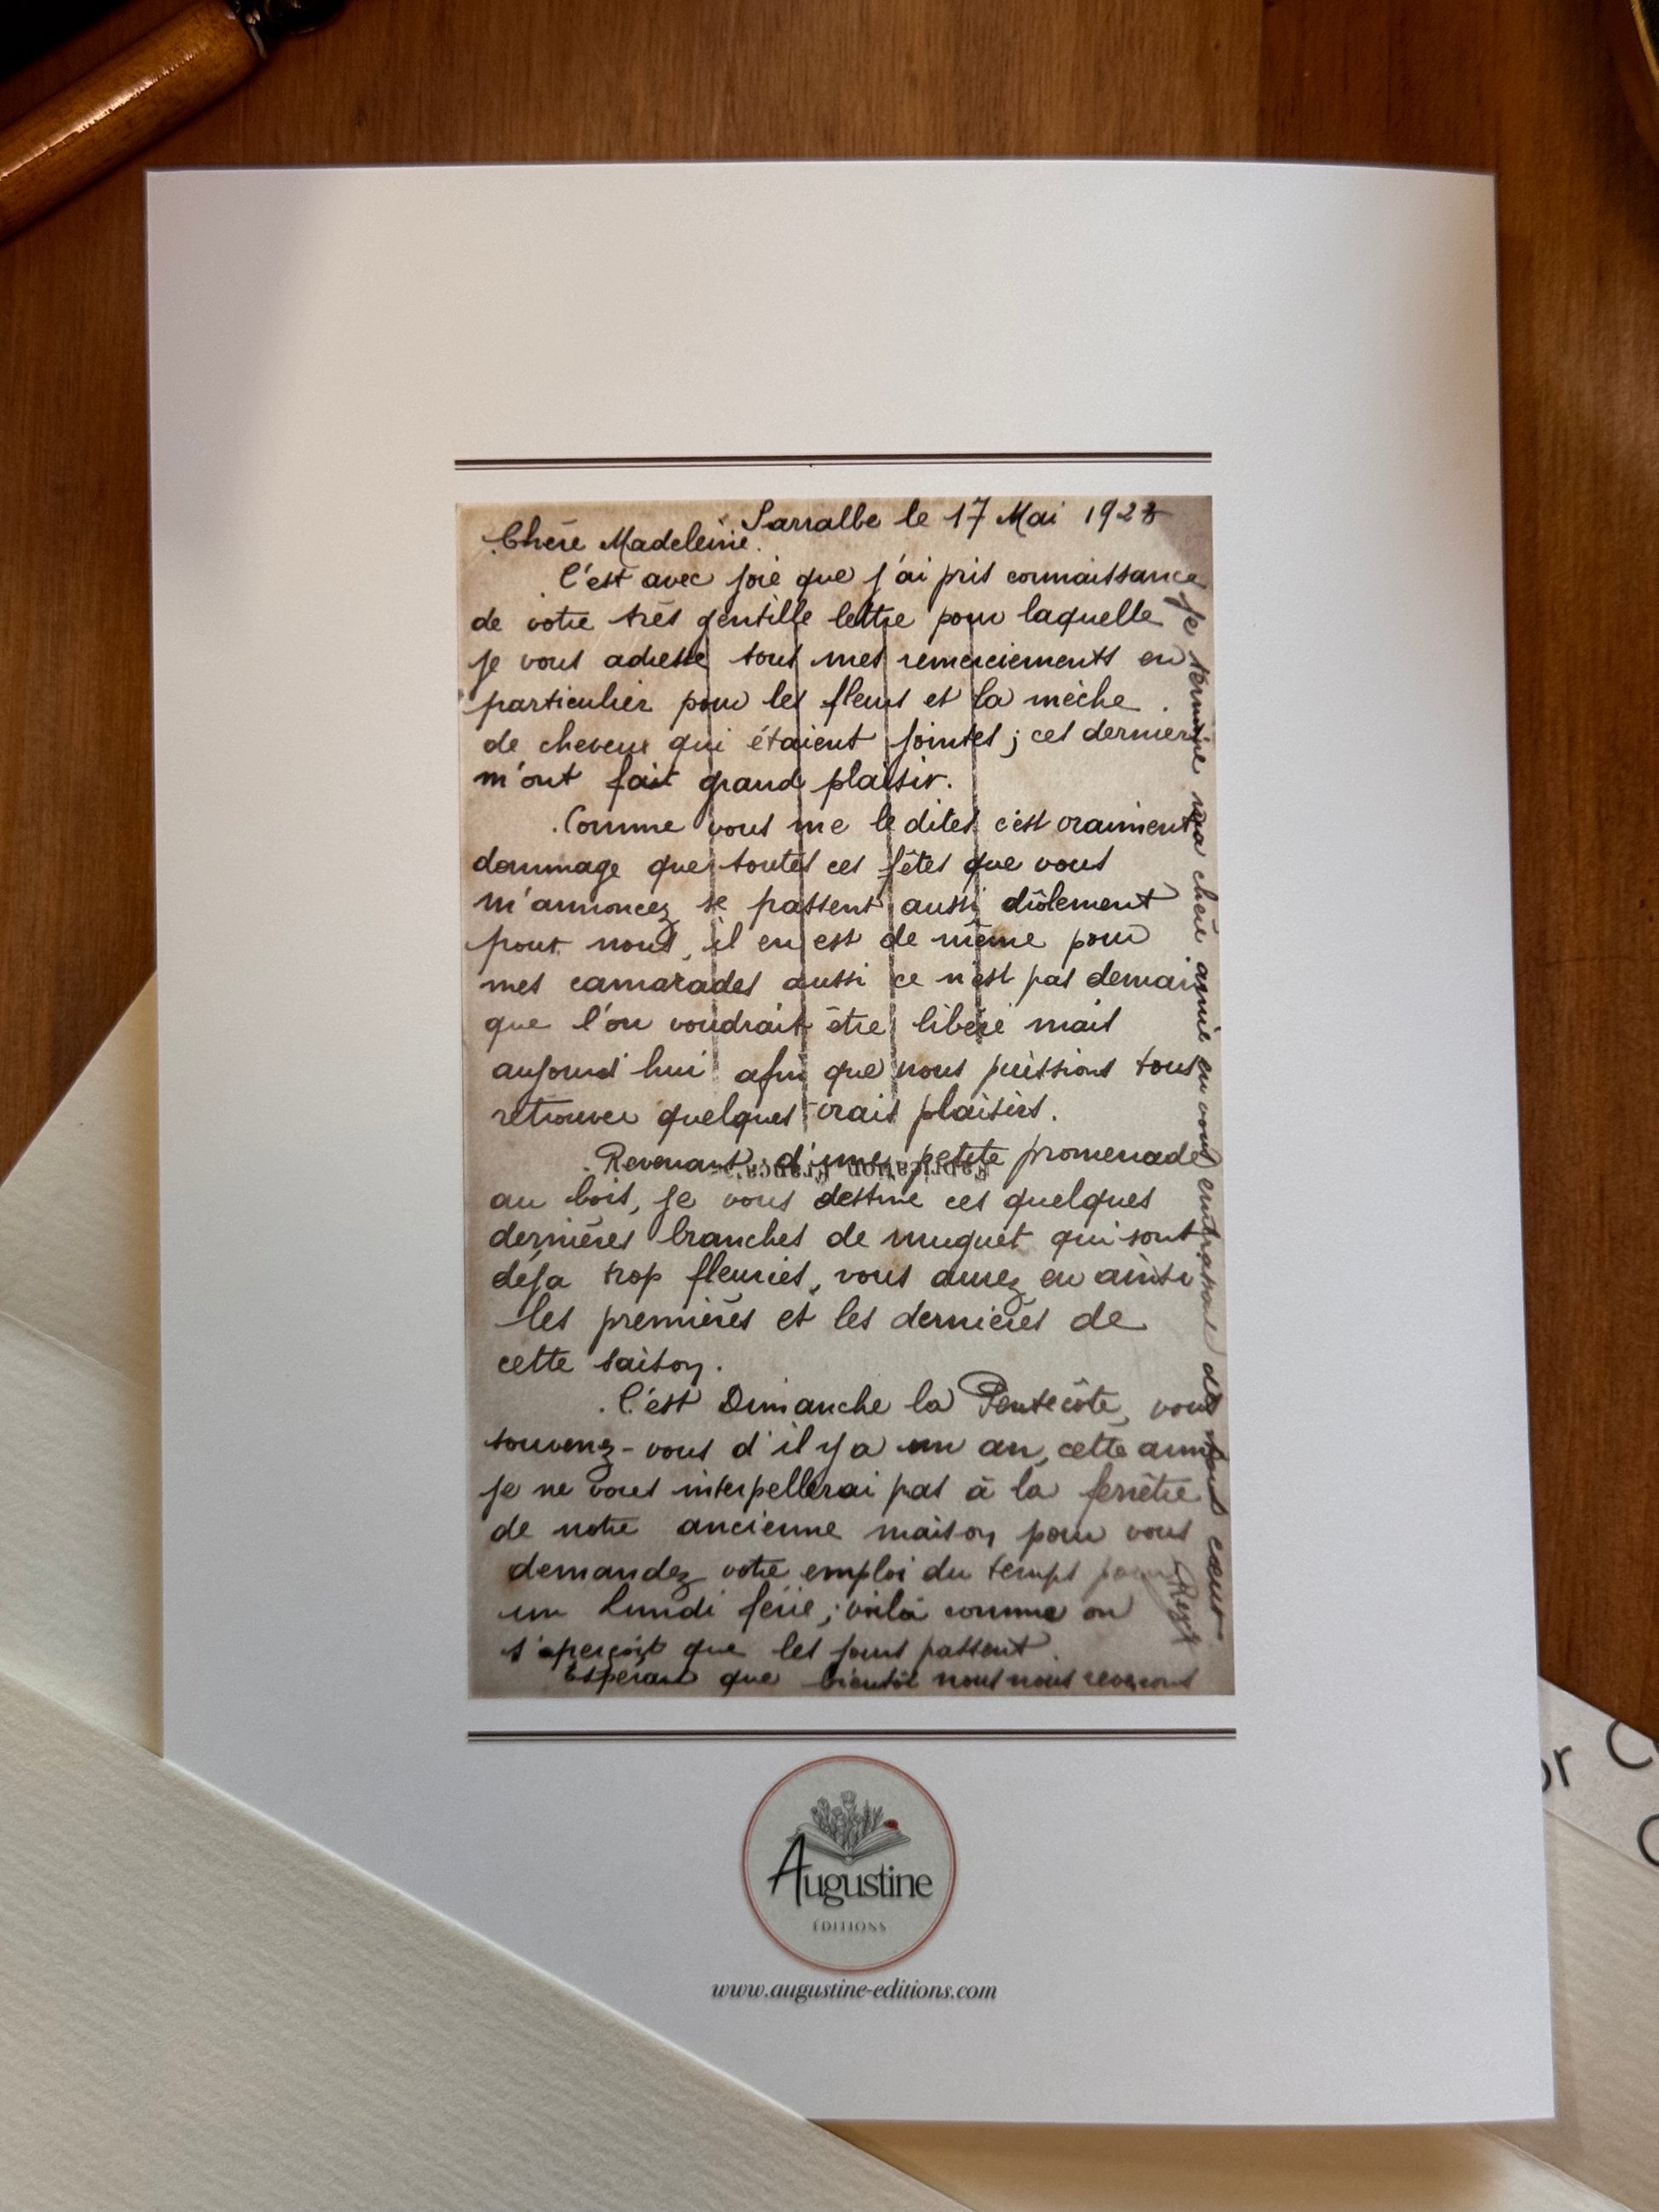 Sarralbe le 17 Mai 192
Chère Madeleine.
C'est avec joie que j'ai pris connaissance
de votre très gentille lettre pour laquelle
je vous adresse tous mes remerciements en
particulier pour les fleurs et la mèche
de cheveux qui étaient jointes ; ces derniers
m'ont fait grand plaisir.
Comme vous me le dites c'est vraiment
dommage que toutes ces fêtes que vous
m'annoncez se passent aussi drôlement
pour nous, il en est de même pour
mes camarades aussi ce n'est pas demain
que l'on voudrait être libéré mais
aujourd'hui afin que nous puissions tous
retrouver quelques vrais plaisirs.
Revenant d'une petite promenade
Fabrication Française
au bois, je vous destine ces quelques
dernières branches de muguet qui sont
déja trop fleuries, vous aurez eu ainsi
les premières et les dernières de
cette saison.
C'est Dimanche la Pentecôte, vous
souvenez-vous d'il y a un an, cette année
je ne vous interpellerai pas à la fenêtre
de notre ancienne maison pour vous
demandez votre emploi du temps pour
un Lundi férié ; voilà comme on
s'aperçoit que les jours passent.
Espérant que bientôt nous nous reverrons
Je termine ma chère amie en vous embrassant de tout cœur
Augustine
ÉDITIONS
www.augustine-editions.com
or